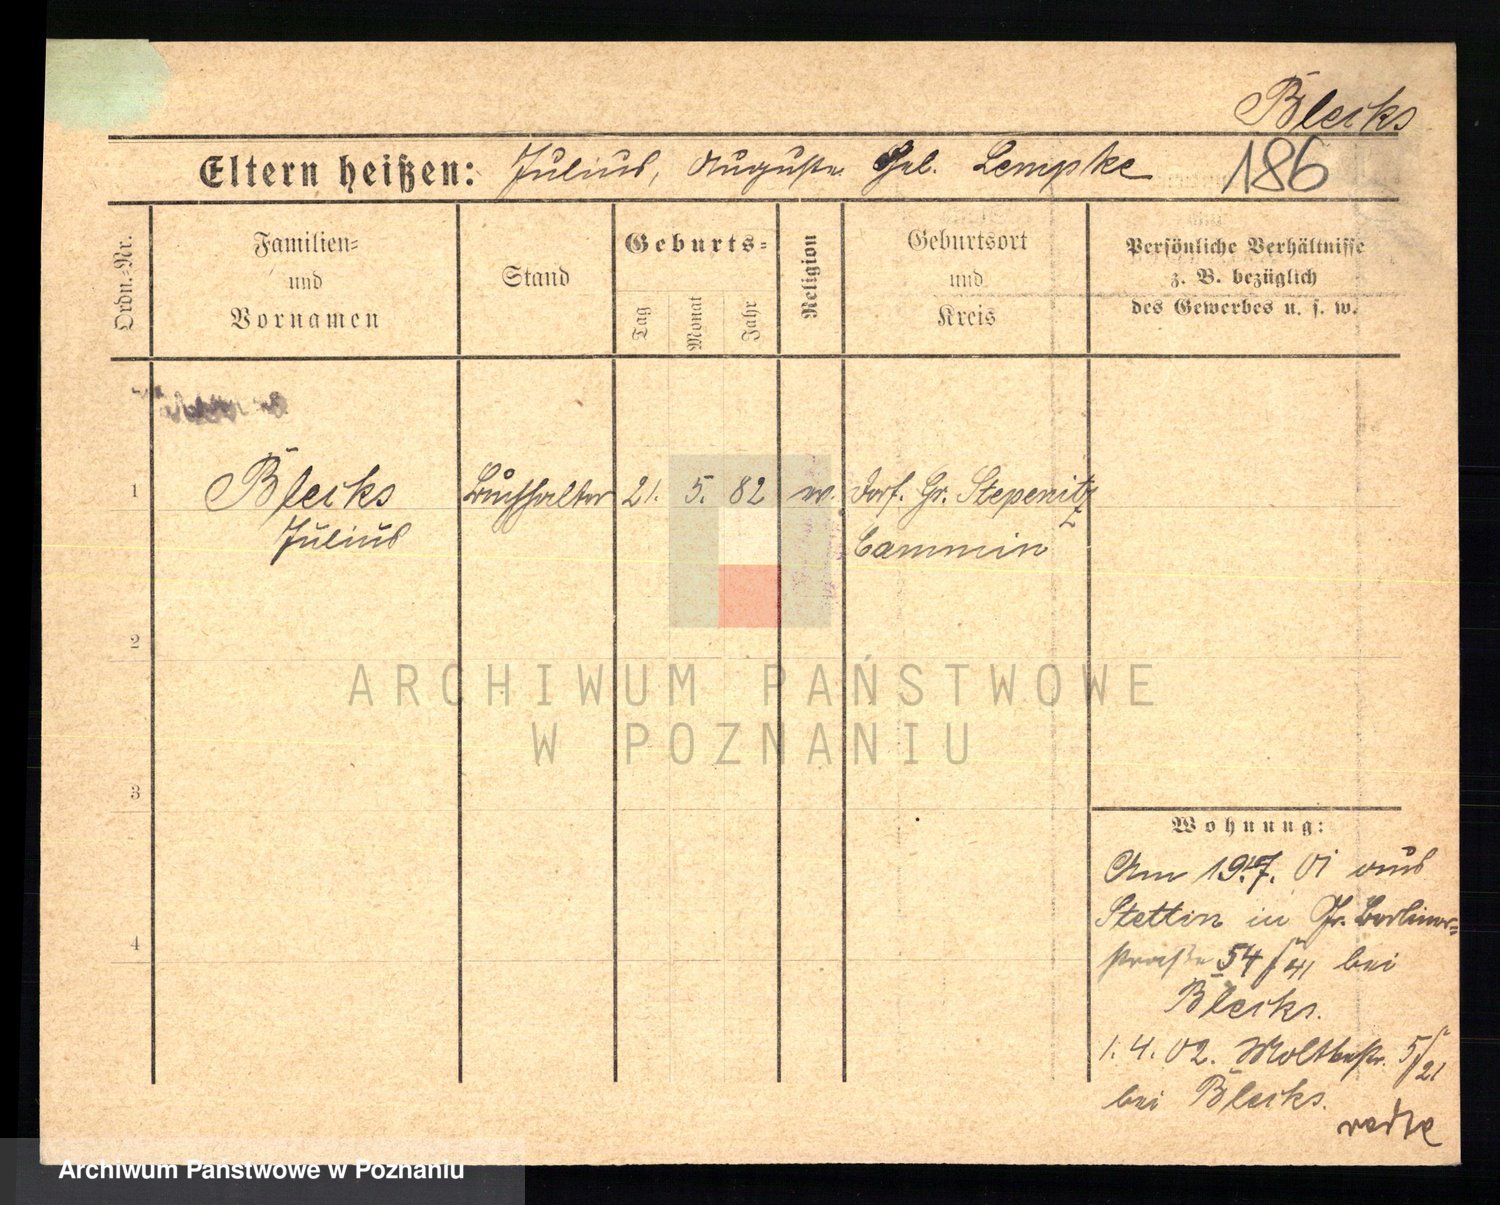 Blecks
Eltern heißen: Julius, Auguste Geb. Lempke 186
Ordn.-Nr.
Familien-
und
Vornamen
Stand
Geburts-
Tag
Monat
Jahr
Religion
Geburtsort
und
Kreis
Persönliche Verhältnisse
z. B. bezüglich
des Gewerbes u. s. w.
1 Blecks Buchhalter 21. 5. 82 ev. Dorf. Gr. Stepenitz
Julius Cammin
2
3
4
ARCHIWUM PAŃSTWOWE
W POZNANIU
Wohnung:
Am 19.7. 01 aus
Stettin in Gr. Berliner-
straße 54 bei
Blecks.
1. 4. 02. Moltkestr. 5/21
bei Blecks.
Archiwum Państwowe w Poznaniu